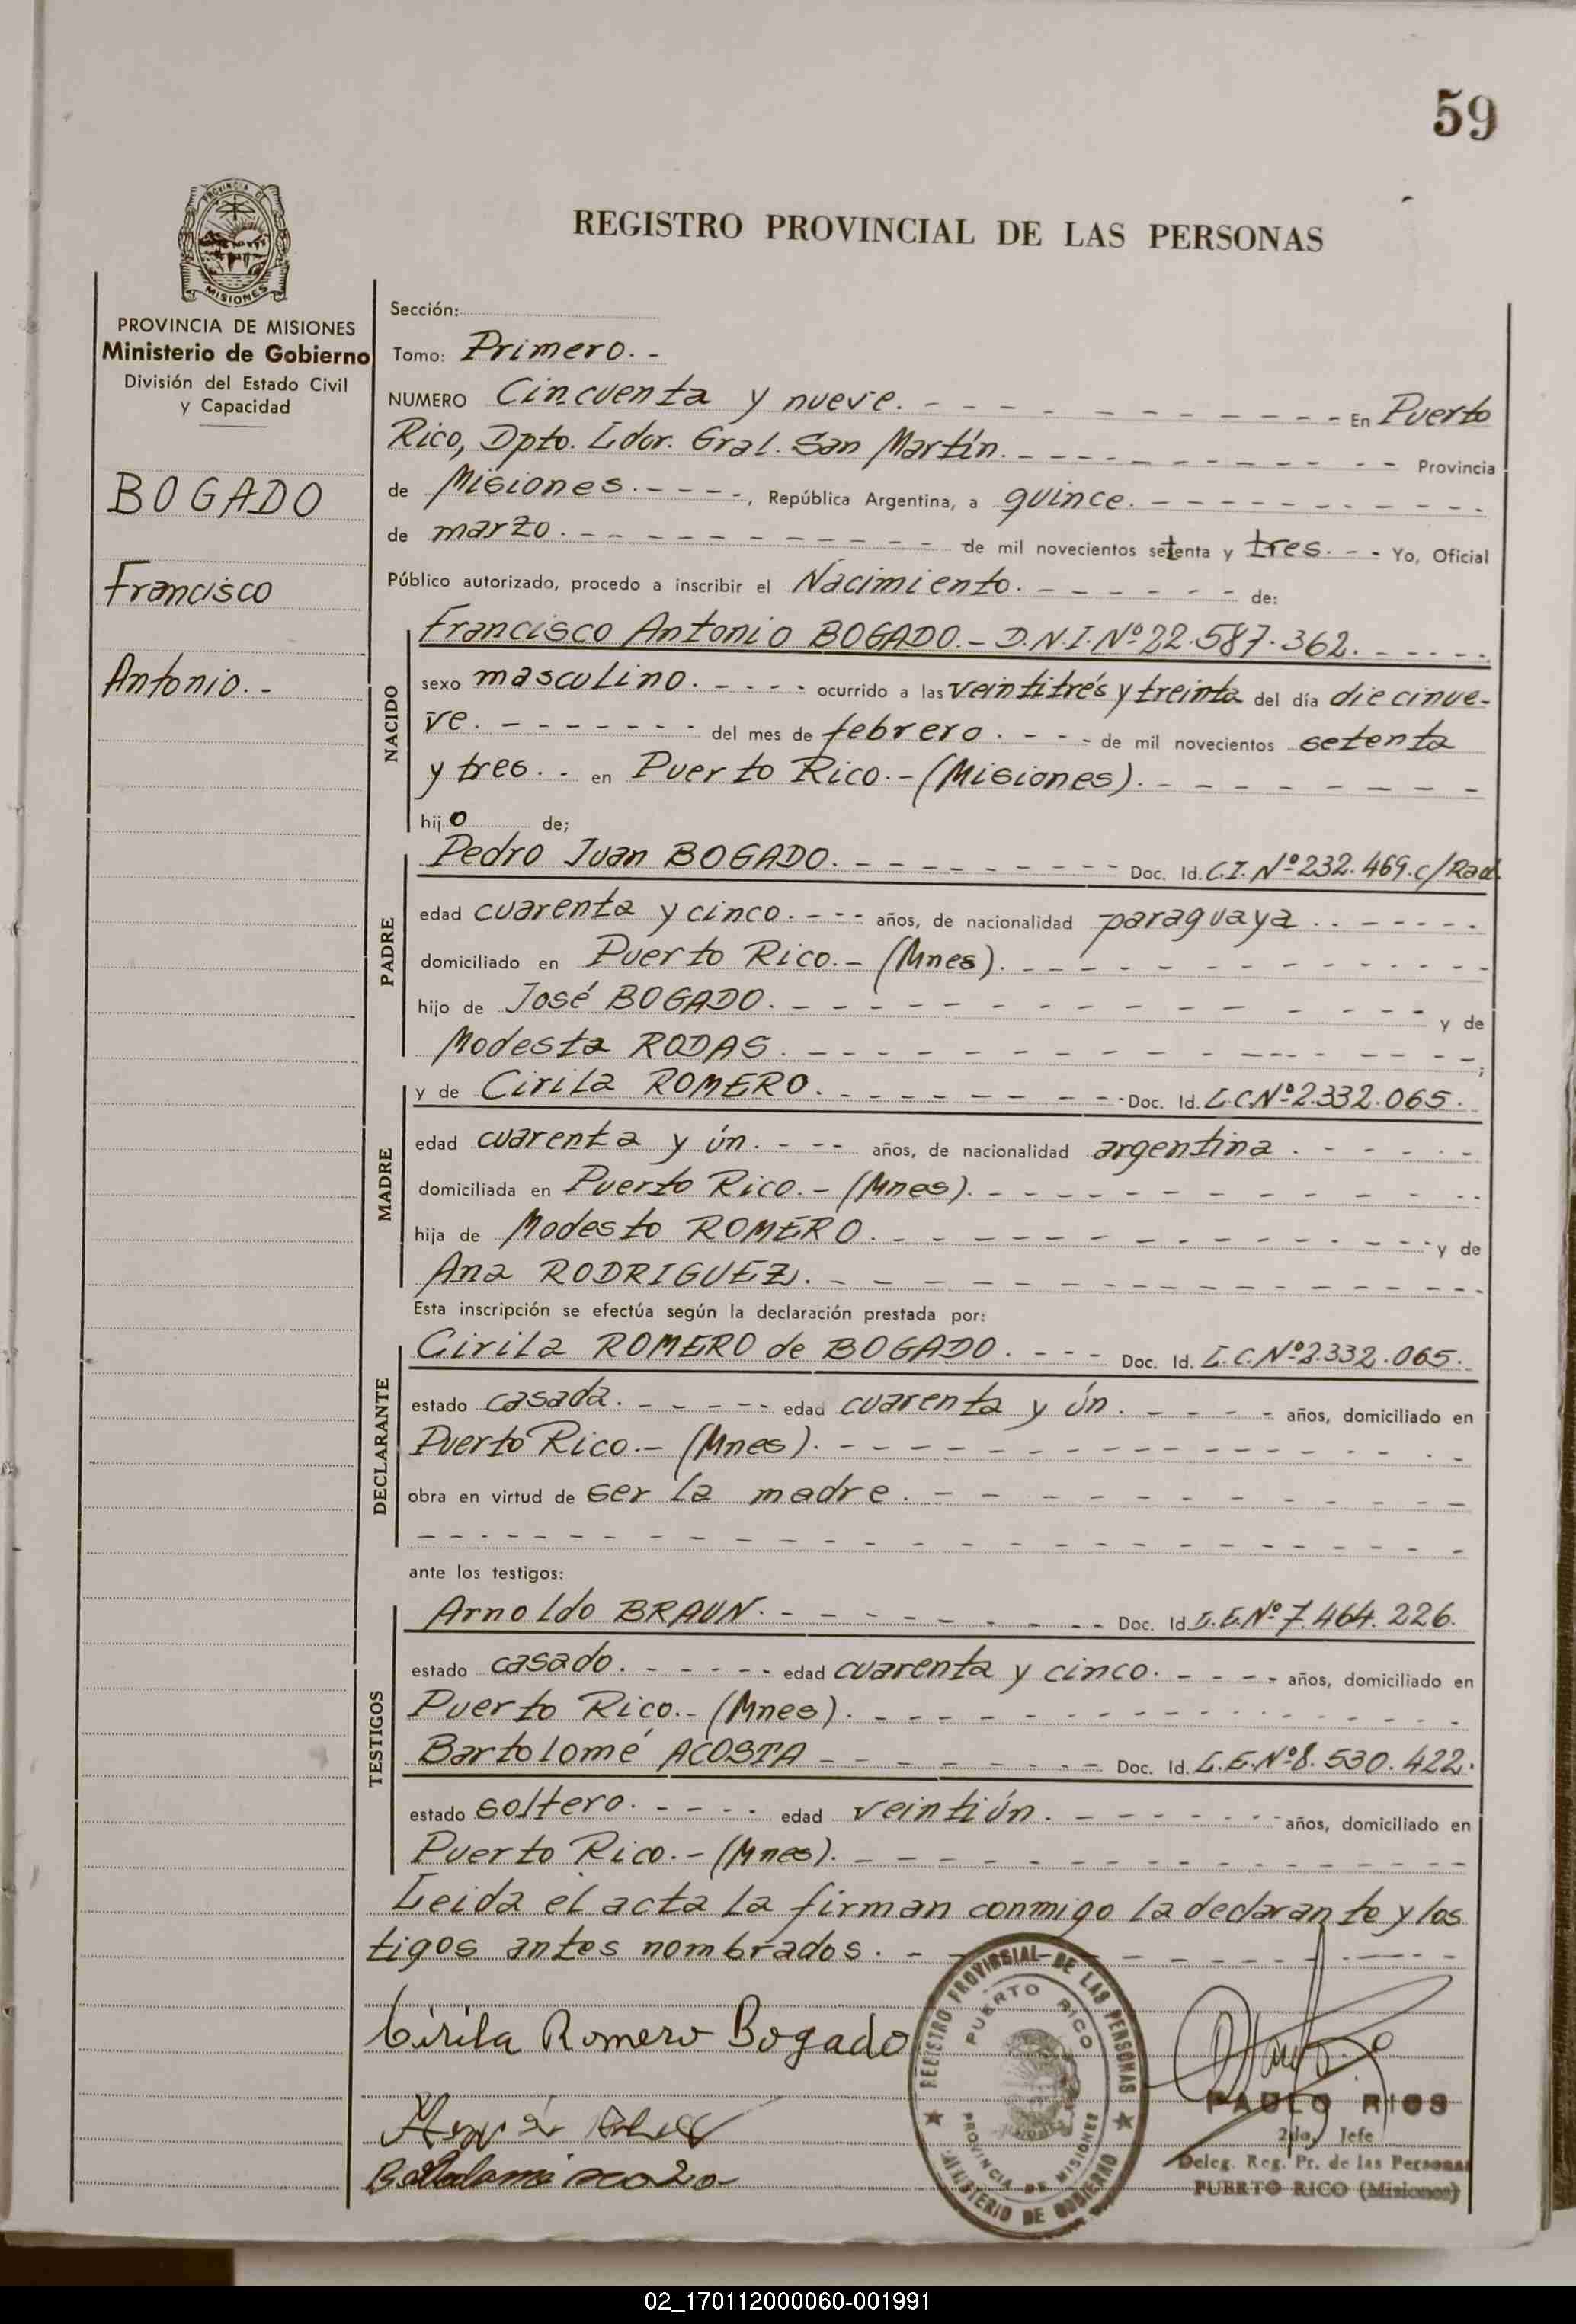 59
REGISTRO PROVINCIAL DE LAS PERSONAS
PROVINCIA DE MISIONES
Ministerio de Gobierno
División del Estado Civil
y Capacidad
BOGADO
Francisco
Antonio.-
Sección:
Tomo: Primero.-
NUMERO Cincuenta y nueve. En Puerto
Rico, Dpto. Ldor. Gral. San Martín. Provincia
de Misiones., República Argentina, a quince.
de marzo. de mil novecientos setenta y tres. Yo, Oficial
Público autorizado, procedo a inscribir el Nacimiento. de:
NACIDO
Francisco Antonio BOGADO.- D.N.I.Nº22.587.362.
sexo masculino. ocurrido a las veintitrés y treinta del día diecinue-
ve. del mes de febrero. de mil novecientos setenta
y tres. en Puerto Rico.-(Misiones).
hijo de;
PADRE
Pedro Juan BOGADO. Doc. Id. C.I. Nº232.469.c/Rad.
edad cuarenta y cinco. años, de nacionalidad paraguaya.
domiciliado en Puerto Rico.-(Mnes).
hijo de José BOGADO. y de
Modesta RODAS. ;
MADRE
y de Cirila ROMERO. Doc. Id. L.C.Nº2.332.065.
edad cuarenta y ún. años, de nacionalidad argentina.
domiciliada en Puerto Rico.-(Mnes).
hija de Modesto ROMERO. y de
Ana RODRIGUEZ.
Esta inscripción se efectúa según la declaración prestada por:
DECLARANTE
Cirila ROMERO de BOGADO. Doc. Id. L.C.Nº2.332.065.
estado casada. edad cuarenta y ún. años, domiciliado en
Puerto Rico.-(Mnes).
obra en virtud de ser la madre.
ante los testigos:
TESTIGOS
Arnoldo BRAUN. Doc. Id. L.E.Nº7.464.226.
estado casado. edad cuarenta y cinco. años, domiciliado en
Puerto Rico.-(Mnes).
Bartolomé ACOSTA Doc. Id. L.E.Nº8.530.422.
estado soltero. edad veintiún. años, domiciliado en
Puerto Rico.-(Mnes).
Leida el acta la firman conmigo la declarante y los
tigos antes nombrados.
Cirila Romero Bogado
REGISTRO PROVINCIAL DE LAS PERSONAS
PUERTO RICO
PROVINCIA DE MISIONES
MINISTERIO DE GOBIERNO
PABLO RIOS
2do. Jefe
Deleg. Reg. Pr. de las Personas
PUERTO RICO (Misiones)
02_170112000060-001991